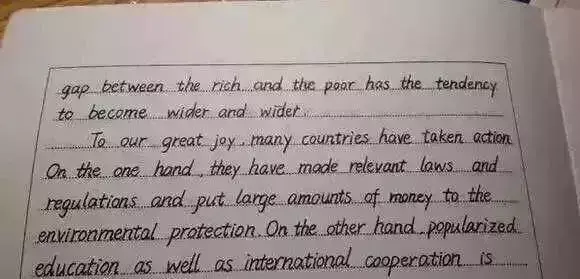 gap between the rich and the poor has the tendency
to become wider and wider.
To our great joy, many countries have taken action
On the one hand, they have made relevant laws and
regulations and put large amounts of money to the
environmental protection. On the other hand, popularized
education as well as international cooperation is